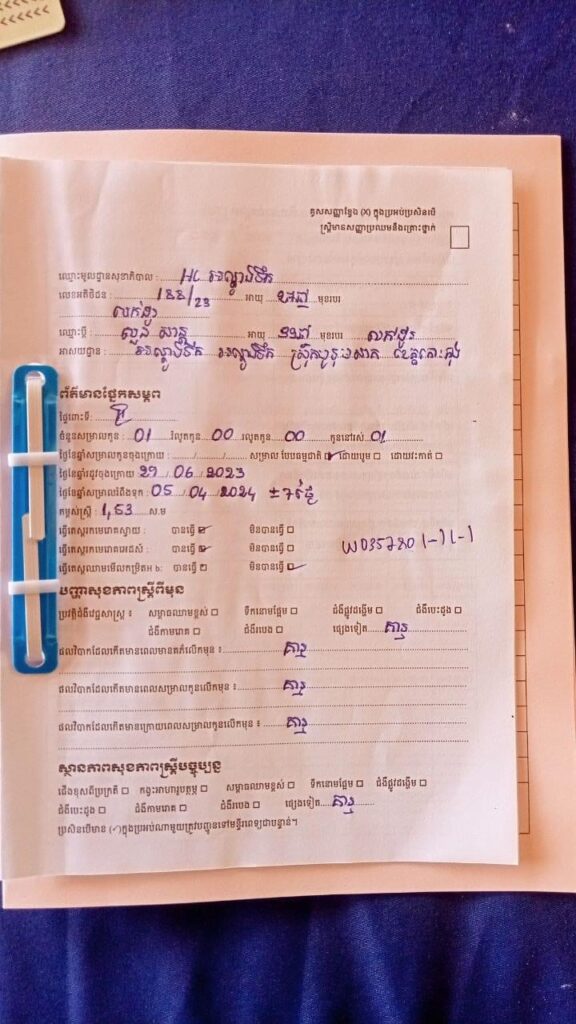 គូសសញ្ញាខ្វែង (X) ក្នុងប្រអប់ប្រសិនបើ
ស្ត្រីមានសញ្ញាប្រឈមនឹងគ្រោះថ្នាក់
ឈ្មោះមូលដ្ឋានសុខាភិបាល : HC អណ្តូងទឹក
លេខអតិថិជន : 188/23 អាយុ មុខរបរ
លក់ដូរ
ឈ្មោះប្តី : អាយុ មុខរបរ លក់ដូរ
អាសយដ្ឋាន : អណ្តូងទឹក អណ្តូងទឹក ស្រុកបូទុមសាគរ ខេត្តកោះកុង
ព័ត៌មានផ្នែកសម្ភព
ថ្ងៃពោះទី:
ចំនួនសម្រាលកូន : 01 រំលូតកូន 00 រលូតកូន 00 កូននៅរស់ 01
ថ្ងៃខែឆ្នាំសម្រាលកូនចុងក្រោយ : / / សម្រាល បែបធម្មជាតិ ☑ ដោយបូម ☐ ដោយវះកាត់ ☐
ថ្ងៃខែឆ្នាំរដូវចុងក្រោយ 29/06/2023
ថ្ងៃខែឆ្នាំសម្រាលរំពឹងទុក : 05/04/2024 ±7ថ្ងៃ
កម្ពស់ស្ត្រី : 1,53 ស.ម
ធ្វើតេស្តរកមេរោគស្វាយ : បានធ្វើ ☑ មិនបានធ្វើ ☐
ធ្វើតេស្តរកមេរោគអេដស៍ : បានធ្វើ ☑ មិនបានធ្វើ ☐ (-) (-)
ធ្វើតេស្តឈាមមើលកម្រិតHb: បានធ្វើ ☐ មិនបានធ្វើ ☑
បញ្ហាសុខភាពស្ត្រីពីមុន
ប្រវត្តិជំងឺវេជ្ជសាស្ត្រ ៖ សម្ពាធឈាមខ្ពស់ ☐ ទឹកនោមផ្អែម ☐ ជំងឺផ្លូវដង្ហើម ☐ ជំងឺបេះដូង ☐
ជំងឺកាមរោគ ☐ ជំងឺរបេង ☐ ផ្សេងទៀត គ្មាន
ផលវិបាកដែលកើតមានពេលមានគភ៌លើកមុន ៖ គ្មាន
ផលវិបាកដែលកើតមានពេលសម្រាលកូនលើកមុន ៖ គ្មាន
ផលវិបាកដែលកើតមានក្រោយពេលសម្រាលកូនលើកមុន ៖ គ្មាន
ស្ថានភាពសុខភាពស្ត្រីបច្ចុប្បន្ន
ជើងខុសពីប្រក្រតី ☐ កង្វះអាហារូបត្ថម្ភ ☐ សម្ពាធឈាមខ្ពស់ ☐ ទឹកនោមផ្អែម ☐ ជំងឺផ្លូវដង្ហើម ☐
ជំងឺបេះដូង ☐ ជំងឺកាមរោគ ☐ ជំងឺរបេង ☐ ផ្សេងទៀត គ្មាន
ប្រសិនបើមាន (✓)ក្នុងប្រអប់ណាមួយត្រូវបញ្ជូនទៅមន្ទីរពេទ្យជាបន្ទាន់។